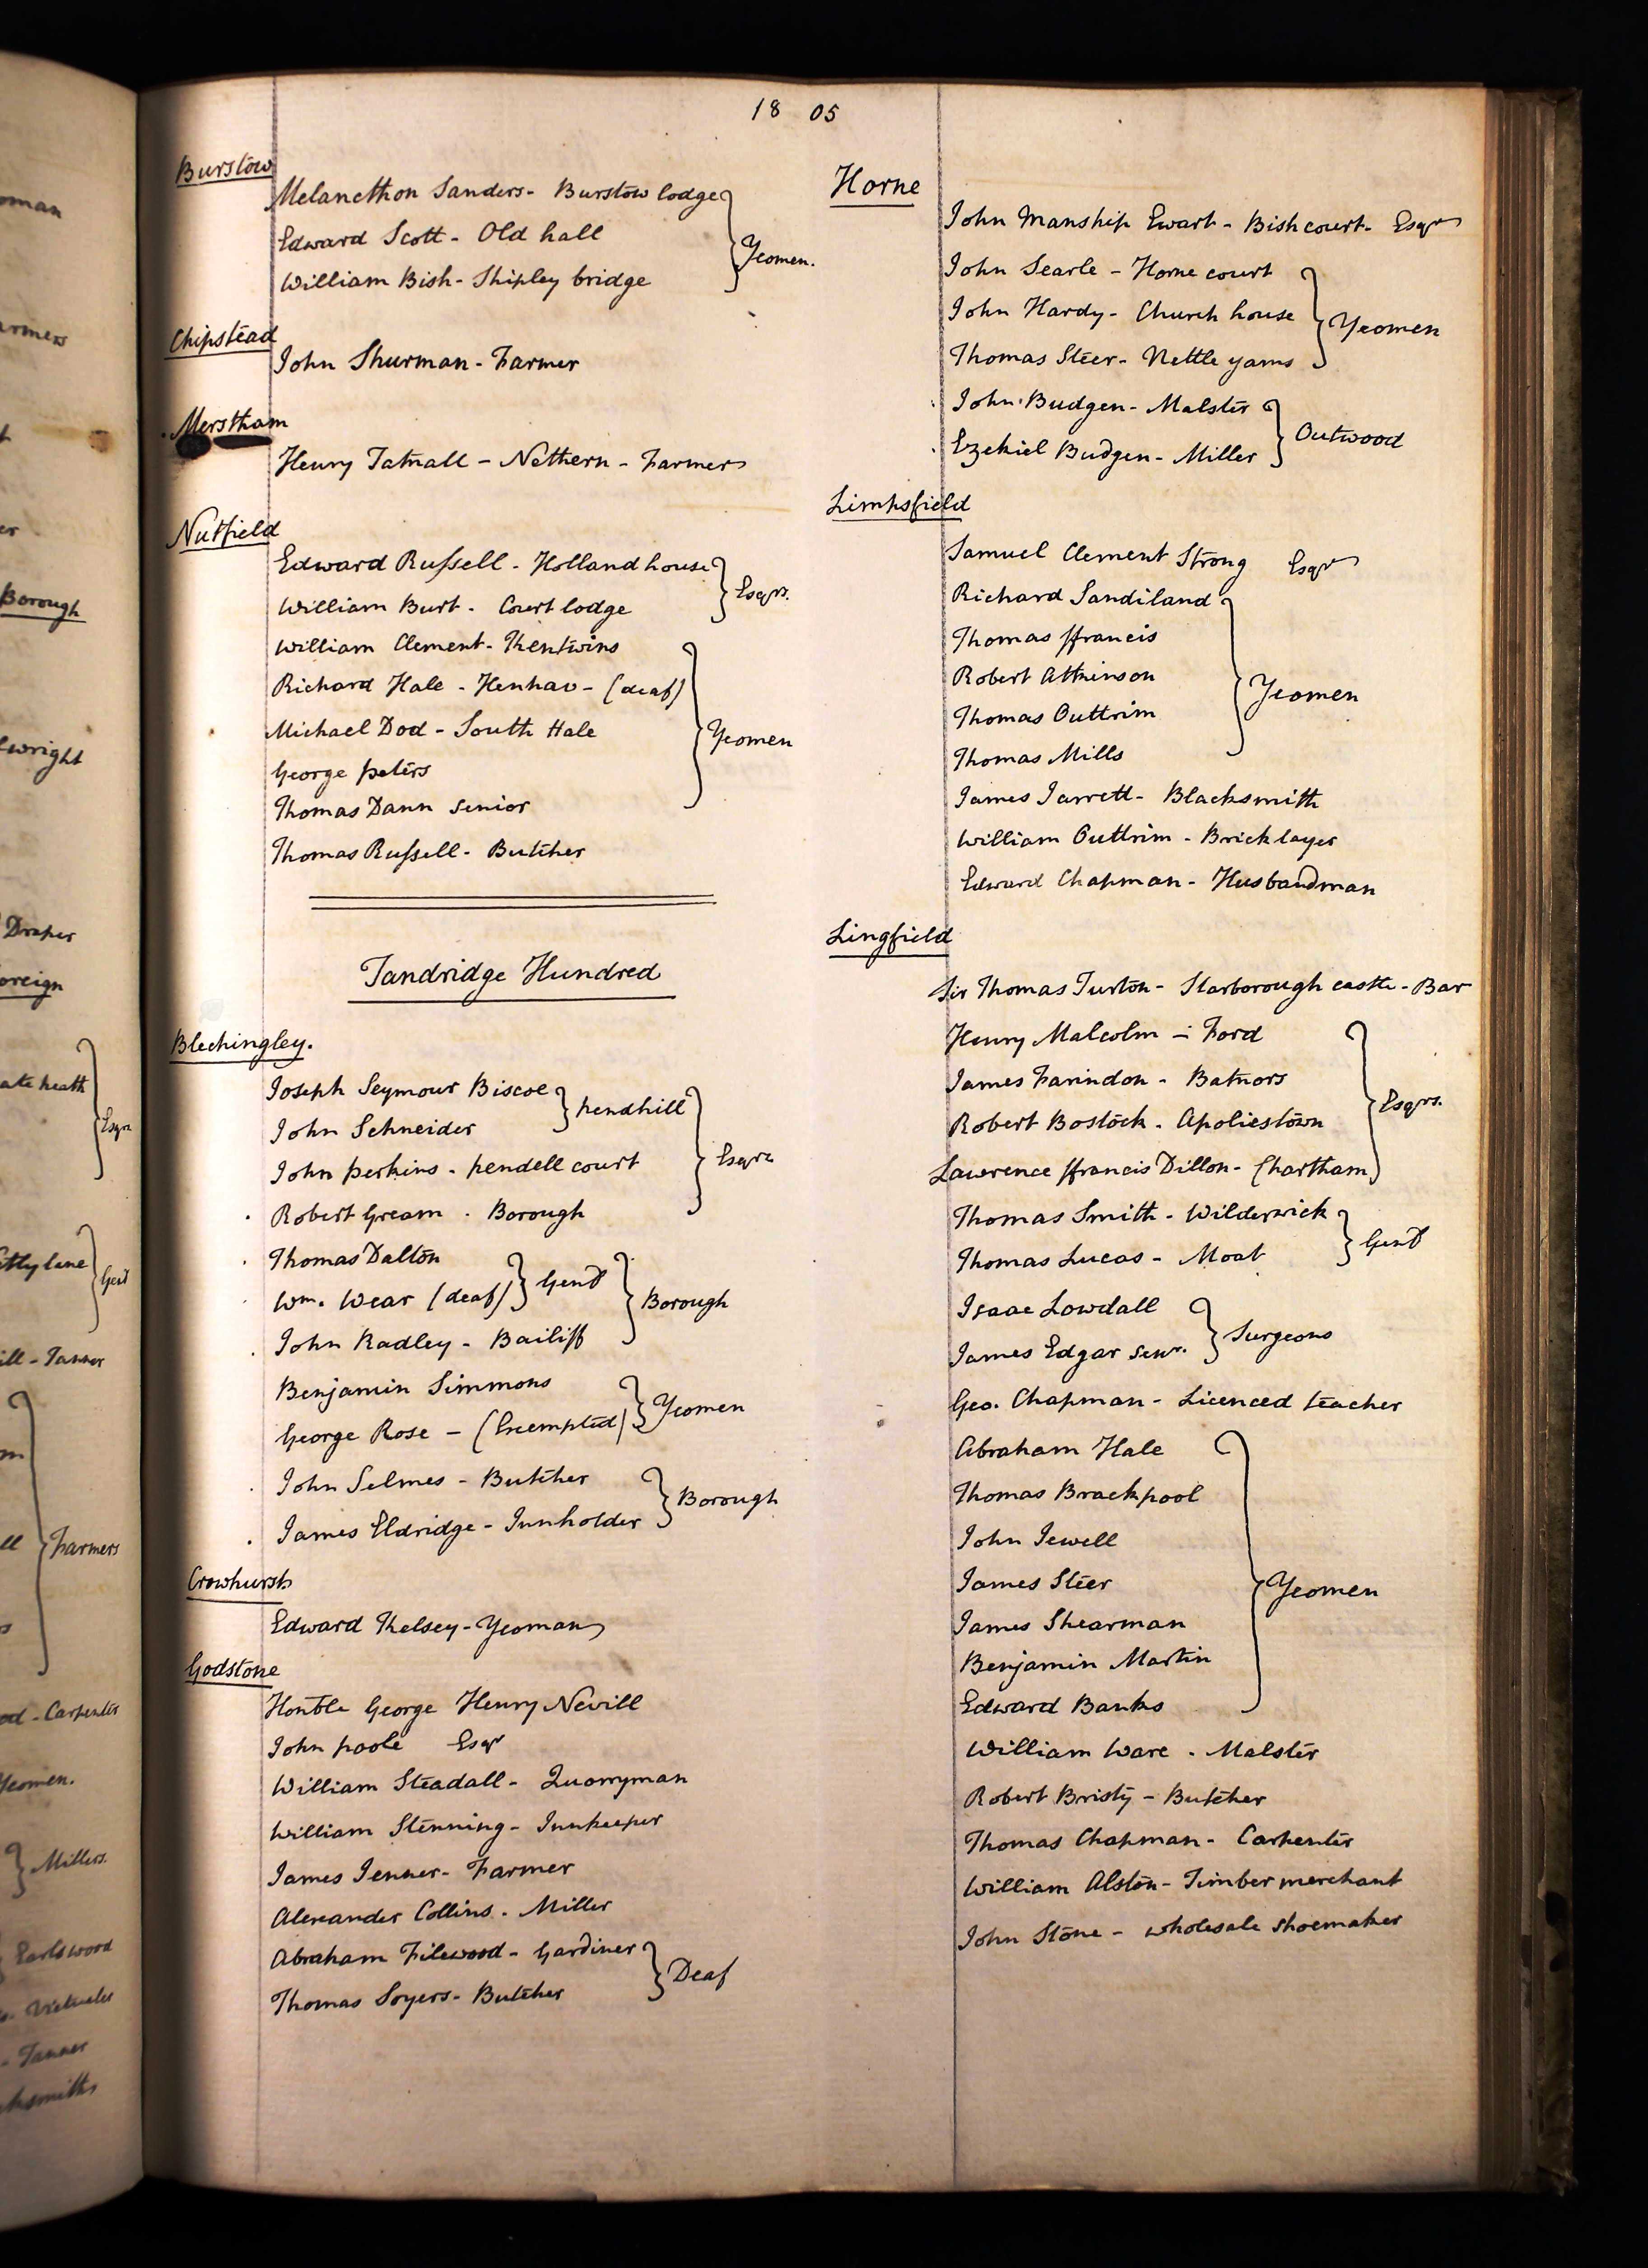 18 05
Burstow
Melancthon Sanders - Burstow lodge
Edward Scott - Old hall
William Bish - Shipley bridge
Yeomen.
Chipstead
John Shurman - Farmer
Merstham
Henry Tatnall - Nethern - Farmer
Nutfield
Edward Russell - Holland house
William Burt - Court lodge
Esqrs.
William Clement - Kentwins
Richard Hale - Henhaw - (deaf)
Michael Dod - South Hale
George peters
Thomas Dann senior
Yeomen
Thomas Russell - Butcher
Tandridge Hundred
Blechingley.
Joseph Seymour Biscoe
John Schneider
pendhill
John perkins - pendell court
Robert Gream - Borough
Esqrs
Thomas Dalton
Wm. Wear (deaf)
Gent
John Radley - Bailiff
Borough
Benjamin Simmons
George Rose - (Exempted)
Yeomen
John Selmes - Butcher
James Eldridge - Innholder
Borough
Crowhurst
Edward Kelsey - Yeoman
Godstone
Honble George Henry Nevill
John poole Esqr
William Steadall - Quarryman
William Stenning - Innkeeper
James Jenner - Farmer
Alexander Collins - Miller
Abraham Filewood - Gardiner
Thomas Soyers - Butcher
Deaf
Horne
John Manship Ewart - Bishcourt - Esqr
John Searle - Horne court
John Hardy - Church house
Thomas Steer - Nettle yams
Yeomen
John Budgen - Malster
Ezekiel Budgen - Miller
Outwood
Limpsfield
Samuel Clement Strong Esqr
Richard Sandiland
Thomas ffrancis
Robert Atkinson
Thomas Outtrim
Thomas Mills
Yeomen
James Jarrett - Blacksmith
William Outtrim - Bricklayer
Edward Chapman - Husbandman
Lingfield
Sir Thomas Turton - Starborough castle - Bar
Henry Malcolm - Ford
James Farindon - Batnors
Robert Bostock - Apoliestown
Lawrence ffrancis Dillon - Chartham
Esqrs.
Thomas Smith - Wilderwick
Thomas Lucas - Moat
Gent
Isaac Lowdall
James Edgar senr.
Surgeons
Geo. Chapman - Licenced teacher
Abraham Hale
Thomas Brackpool
John Jewell
James Steer
James Shearman
Benjamin Martin
Edward Banks
Yeomen
William Ware - Malster
Robert Bristy - Butcher
Thomas Chapman - Carpenter
William Alston - Timber merchant
John Stone - wholesale shoemaker
Borough
Draper
Esqrs
Gent
Farmers
Carpenter
Yeomen.
Millers.
Earlswood
Tanner